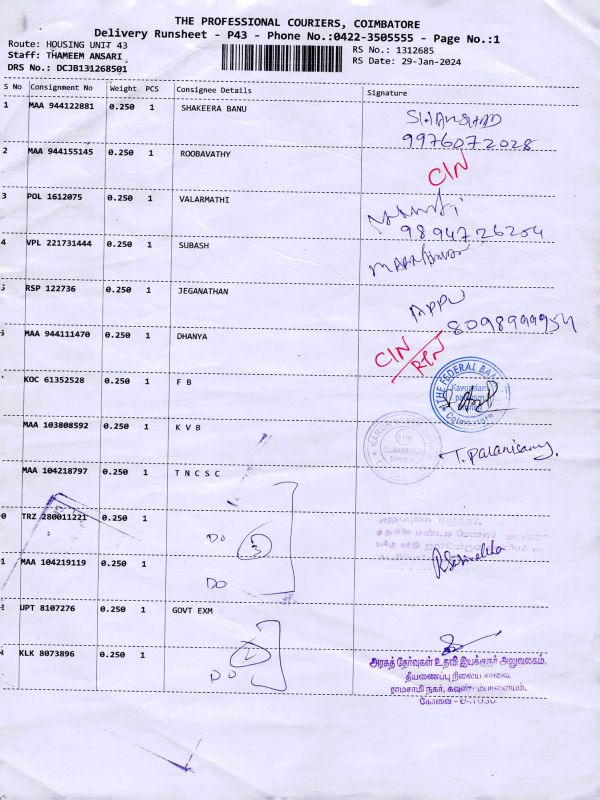 THE PROFESSIONAL COURIERS, COIMBATORE
Delivery Runsheet - P43 - Phone No.:0422-3505555 - Page No.:1
Route: HOUSING UNIT 43
RS No.: 1312685
Staff: THAMEEM ANSARI
RS Date: 29-Jan-2024
DRS No.: DCJB131268501
S No Consignment No Weight PCS Consignee Details Signature
1 MAA 944122881 0.250 1 SHAKEERA BANU
9976072028
2 MAA 944155145 0.250 1 ROOBAVATHY
CIN
3 POL 1612075 0.250 1 VALARMATHI
9894726254
4 VPL 221731444 0.250 1 SUBASH
RSP 122736 0.250 1 JEGANATHAN
APPU
8098999954
MAA 944111470 0.250 1 DHANYA
CIN
RTN
KOC 61352528 0.250 1 F B
THE FEDERAL BANK
MAA 103808592 0.250 1 K V B
T. Palanisamy
MAA 104218797 0.250 1 T N C S C
0 TRZ 280011221 0.250 1
DO
3
1 MAA 104219119 0.250 1
DO
2 UPT 8107276 0.250 1 GOVT EXM
KLK 8073896 0.250 1
DO
அரசுத் தேர்வுகள் உதவி இயக்குநர் அலுவலகம்,
தீயணைப்பு நிலைய சாலை,
ராமசாமி நகர், கவுண்டம்பாளையம்,